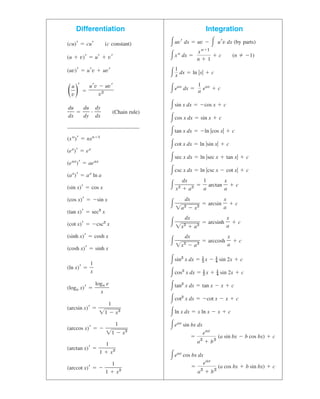 Differentiation
(cu)' = cu' (c constant)
(u + v)' = u' + v'
(uv)' = u'v + uv'
(u/v)' = (u'v − uv')/v²
du/dx = du/dy · dy/dx (Chain rule)
(xⁿ)' = nxⁿ⁻¹
(eˣ)' = eˣ
(eᵃˣ)' = aeᵃˣ
(aˣ)' = aˣ ln a
(sin x)' = cos x
(cos x)' = −sin x
(tan x)' = sec² x
(cot x)' = −csc² x
(sinh x)' = cosh x
(cosh x)' = sinh x
(ln x)' = 1/x
(logₐ x)' = logₐ e/x
(arcsin x)' = 1/√(1 − x²)
(arccos x)' = − 1/√(1 − x²)
(arctan x)' = 1/(1 + x²)
(arccot x)' = − 1/(1 + x²)
Integration
∫ uv' dx = uv − ∫ u'v dx (by parts)
∫ xⁿ dx = xⁿ⁺¹/(n + 1) + c (n ≠ −1)
∫ 1/x dx = ln |x| + c
∫ eᵃˣ dx = 1/a eᵃˣ + c
∫ sin x dx = −cos x + c
∫ cos x dx = sin x + c
∫ tan x dx = −ln |cos x| + c
∫ cot x dx = ln |sin x| + c
∫ sec x dx = ln |sec x + tan x| + c
∫ csc x dx = ln |csc x − cot x| + c
∫ dx/(x² + a²) = 1/a arctan x/a + c
∫ dx/√(a² − x²) = arcsin x/a + c
∫ dx/√(x² + a²) = arcsinh x/a + c
∫ dx/√(x² − a²) = arccosh x/a + c
∫ sin² x dx = ½ x − ¼ sin 2x + c
∫ cos² x dx = ½ x + ¼ sin 2x + c
∫ tan² x dx = tan x − x + c
∫ cot² x dx = −cot x − x + c
∫ ln x dx = x ln x − x + c
∫ eᵃˣ sin bx dx
= eᵃˣ/(a² + b²) (a sin bx − b cos bx) + c
∫ eᵃˣ cos bx dx
= eᵃˣ/(a² + b²) (a cos bx + b sin bx) + c